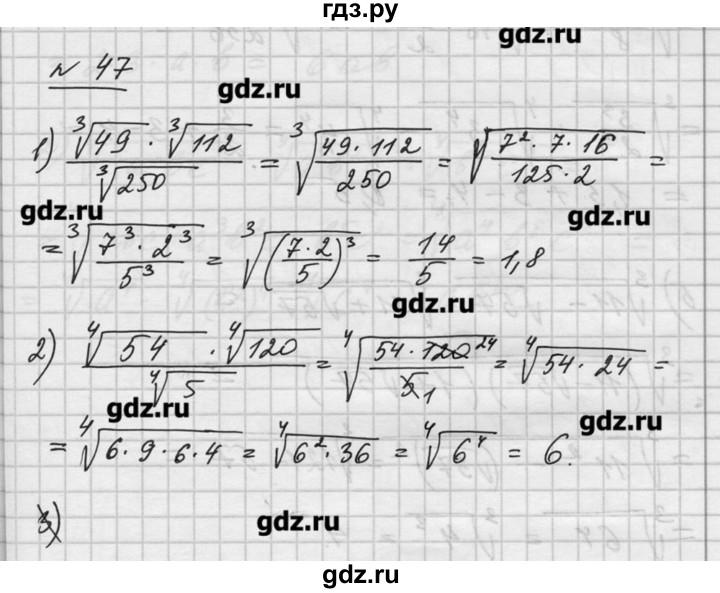 гдз.ру
gdz.ru
№ 47
gdz.ru
1) ∛49 · ∛112 / ∛250 = ∛(49 · 112 / 250) = √(7² · 7 · 16 / 125 · 2) =
gdz.ru
gdz.ru
= ∛(7³ · 2³ / 5³) = ∛((7 · 2 / 5)³) = 14/5 = 1,8
gdz.ru
2) ∜54 · ∜120 / ∜5 = ∜(54 · 120 24 / 5 1) = ∜(54 · 24) =
gdz.ru
gdz.ru
= ∜(6 · 9 · 6 · 4) = ∜(6² · 36) = ∜(6⁴) = 6.
3)
gdz.ru
gdz.ru